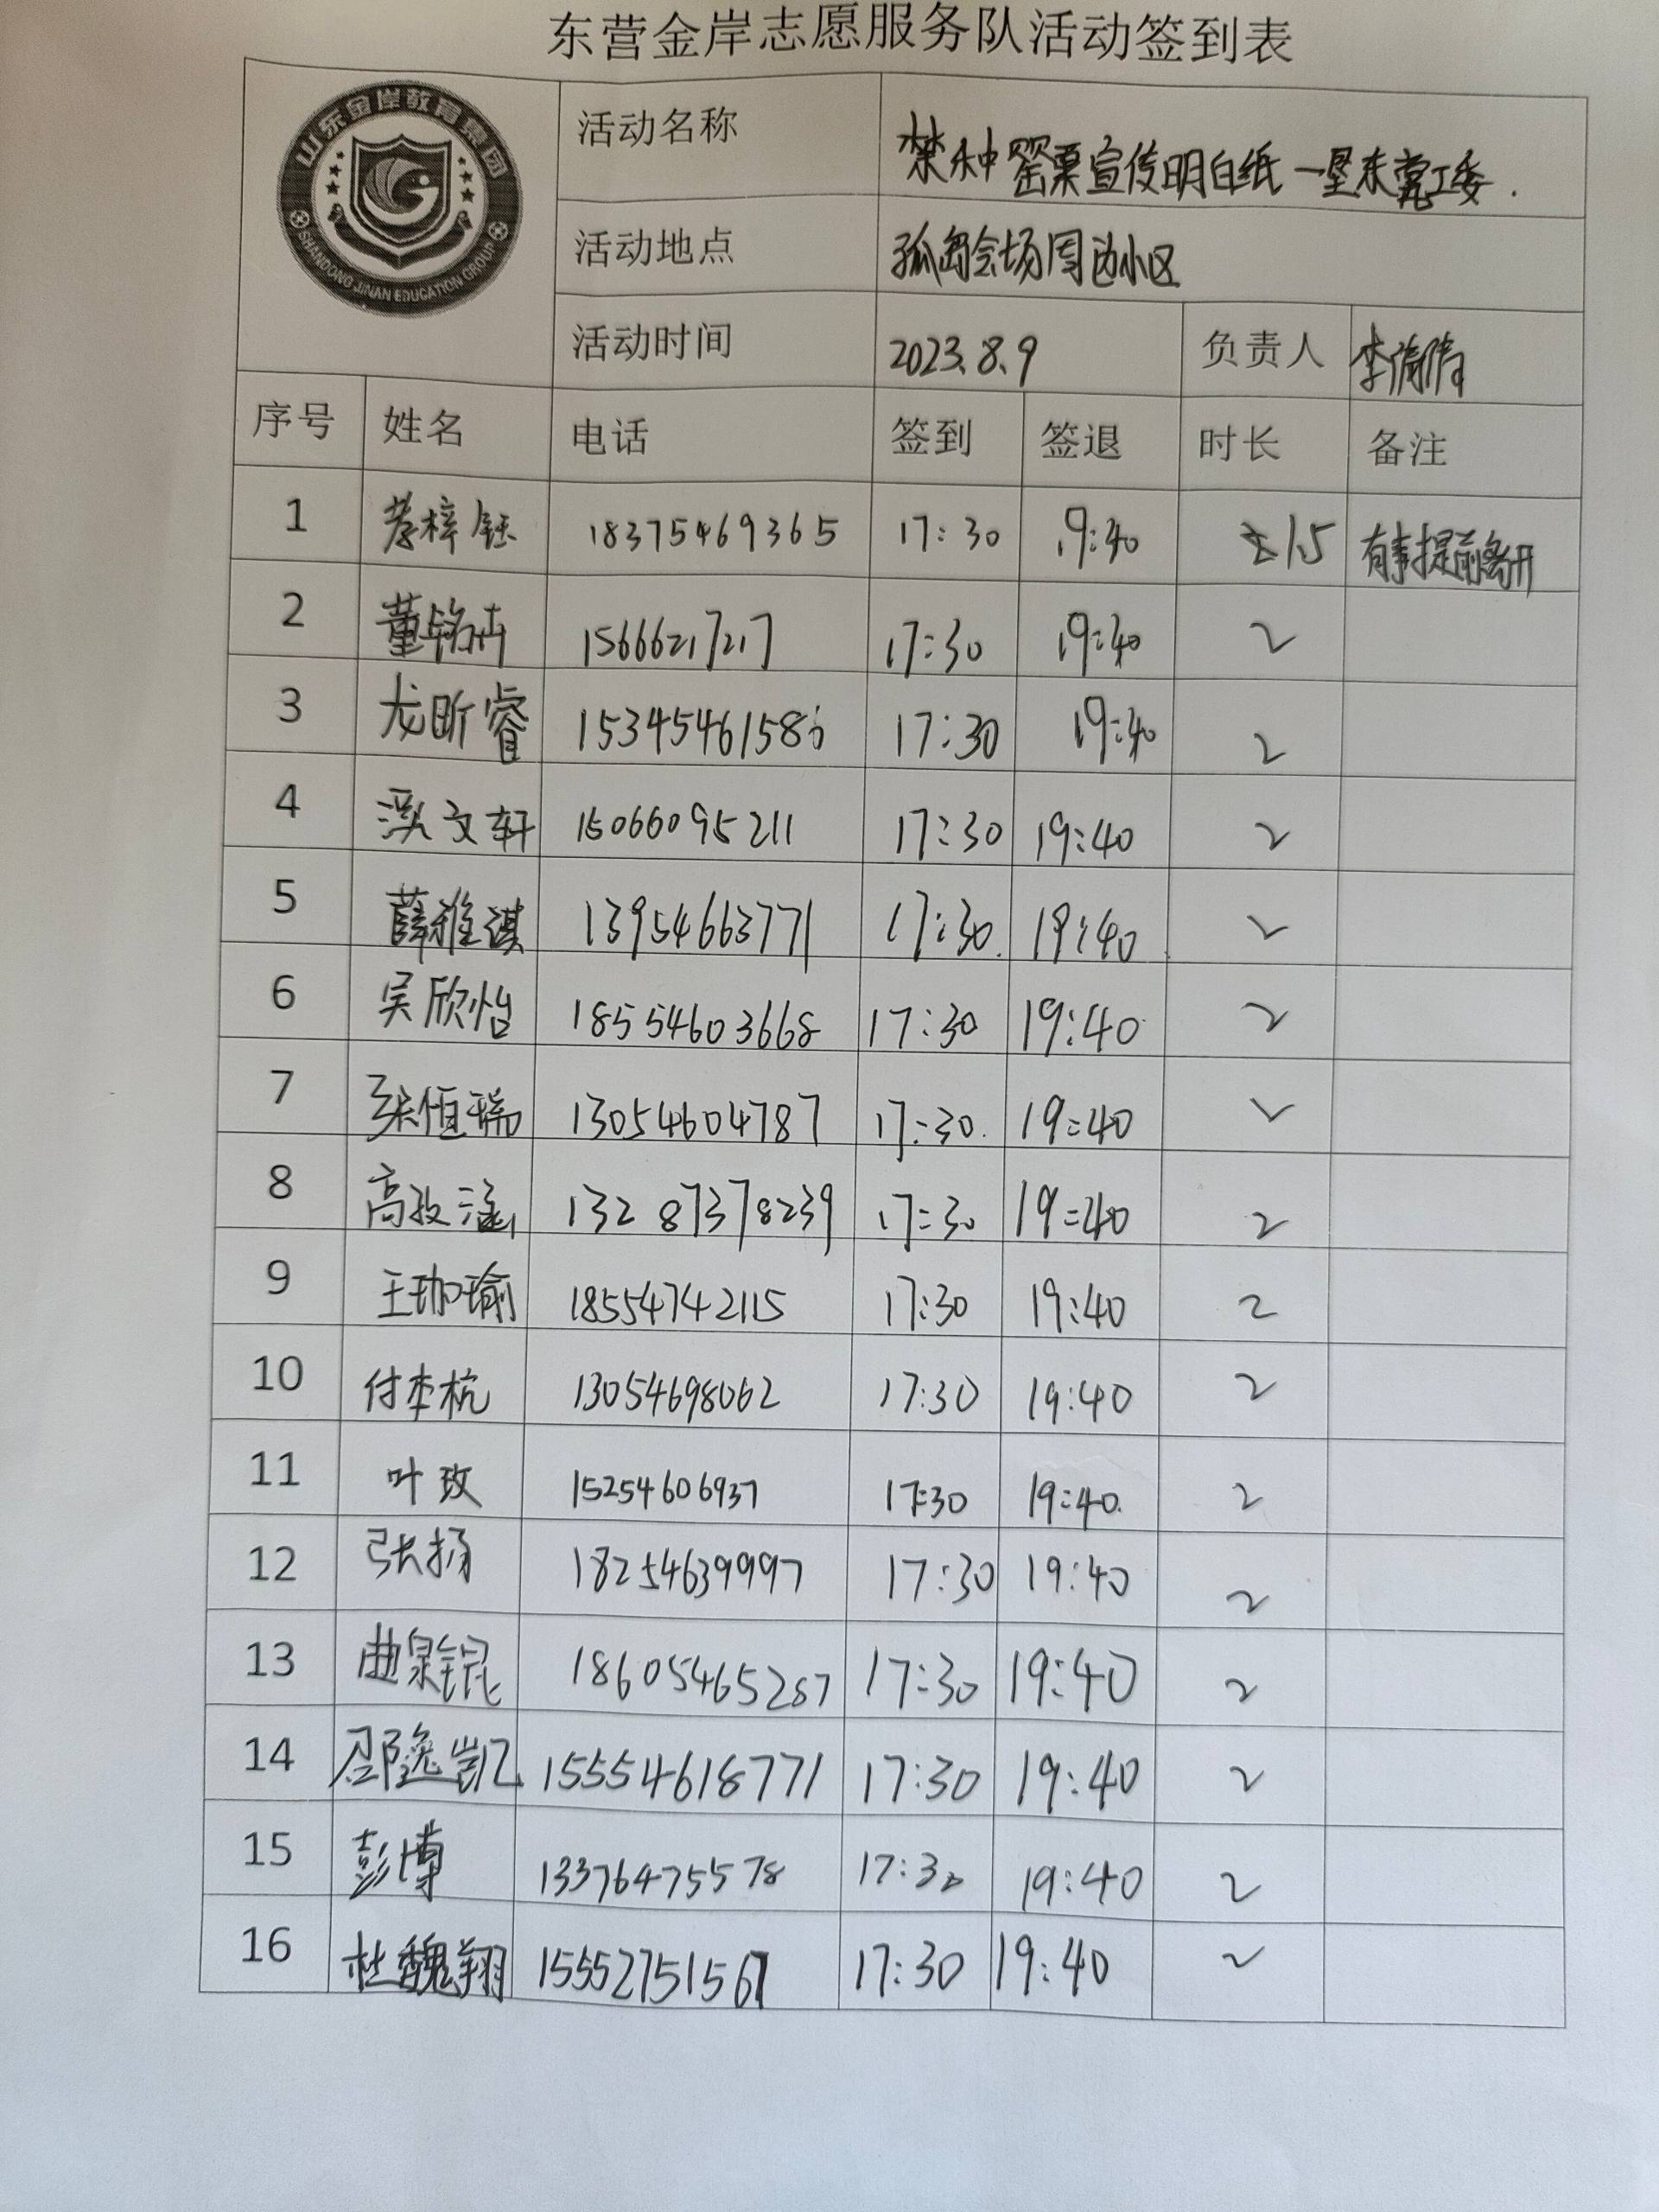 东营金岸志愿服务队活动签到表
山东金岸教育集团
SHANDONG JINAN EDUCATION GROUP
活动名称 禁种罂粟宣传明白纸一垦东党工委.
活动地点 孤岛会场周边小区
活动时间 2023.8.9 负责人 李倩倩
序号 姓名 电话 签到 签退 时长 备注
1 梓钰 18375469365 17:30 19:40 1.5 有事提前离开
2 董铭 15666217217 17:30 19:40 2
3 龙昕睿 1534546158 17:30 19:40 2
4 文轩 15066095211 17:30 19:40 2
5 薛雅淇 13954663771 17:30 19:40 2
6 吴欣怡 18554603668 17:30 19:40 2
7 张恒瑞 13054604787 17:30 19:40 2
8 高孜涵 13287378239 17:30 19:40 2
9 王珈瑜 18554742115 17:30 19:40 2
10 付本杭 13054698062 17:30 19:40 2
11 叶玫 15254606937 17:30 19:40 2
12 张扬 18254639997 17:30 19:40 2
13 曲泉锟 18605465287 17:30 19:40 2
14 邵逸凯 15554618771 17:30 19:40 2
15 彭博 13376475578 17:30 19:40 2
16 杜魏翔 15552751561 17:30 19:40 2